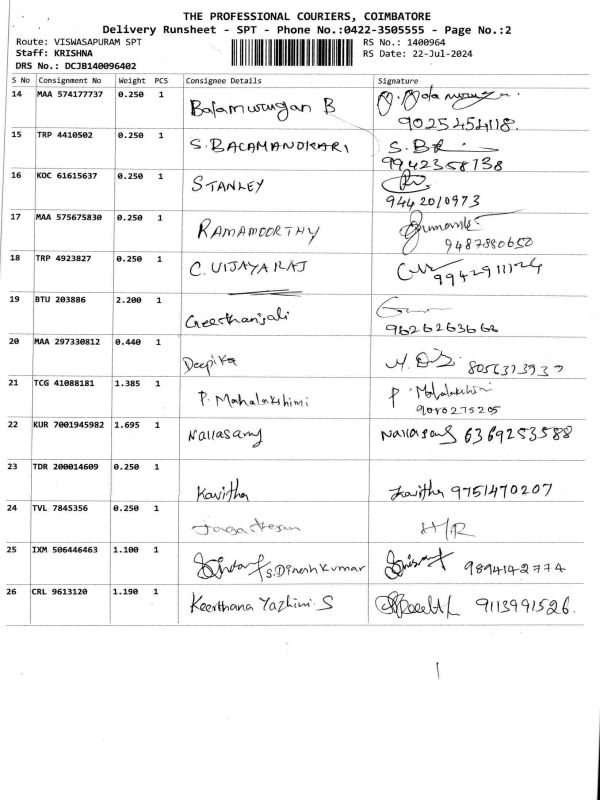 THE PROFESSIONAL COURIERS, COIMBATORE
Delivery Runsheet - SPT - Phone No.:0422-3505555 - Page No.:2
Route: VISWASAPURAM SPT
RS No.: 1400964
Staff: KRISHNA
RS Date: 22-Jul-2024
DRS No.: DCJB140096402
S No Consignment No Weight PCS Consignee Details Signature
14 MAA 574177737 0.250 1 Balamurugan B
9025454118.
15 TRP 4410502 0.250 1 S. BALAMANOHARI S.B
9942358738
16 KOC 61615637 0.250 1 STANLEY
9442010973
17 MAA 575675830 0.250 1 RAMAMOORTHY
9487880650
18 TRP 4923827 0.250 1 C. VIJAYARAJ
9942911124
19 BTU 203886 2.200 1 Geerthanjali
9626263666
20 MAA 297330812 0.440 1 Deepika
21 TCG 41088181 1.385 1 P. Mahalakshimi P. Mahalakshimi
9080275205
22 KUR 7001945982 1.695 1 Nallasamy Nallasamy 6369253588
23 TDR 200014609 0.250 1 Kavitha Kavitha 9751470207
24 TVL 7845356 0.250 1 H/R
25 IXM 506446463 1.100 1 S. Dinesh Kumar 9894142774
26 CRL 9613120 1.190 1 Keerthana Yazhini. S 9113991526.